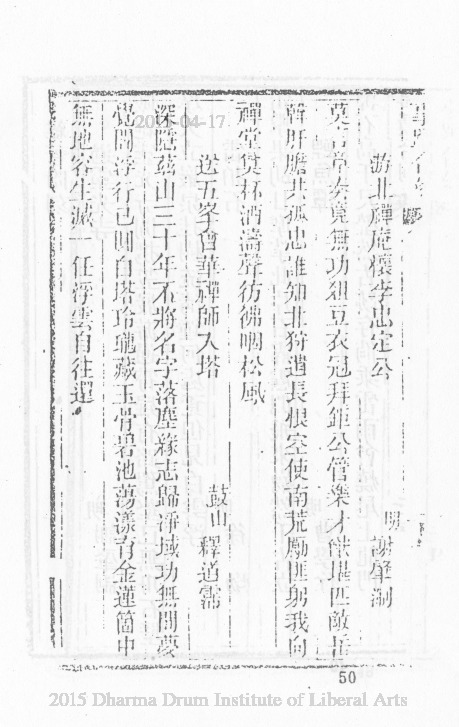 遊北禪庵懷李忠定公
明 謝肇淛
無功俎豆衣冠拜鉅公管樂才猷堪匹敵岳
韓肝膽共孤忠誰知北狩道長恨空使南荒勵匪躬我向
禪堂奠杯酒濤聲彷彿咽松風
送五峯曾華禪師入塔
鼓山 釋道霈
深隐茲山三十年不將名字落塵緣志歸淨域功無間夢
覺閻浮行已圓白塔玲瓏藏玉骨碧池蕩漾有金蓮箇中
無地容生滅一任浮雲自往還
50
2015 Dharma Drum Institute of Liberal Arts